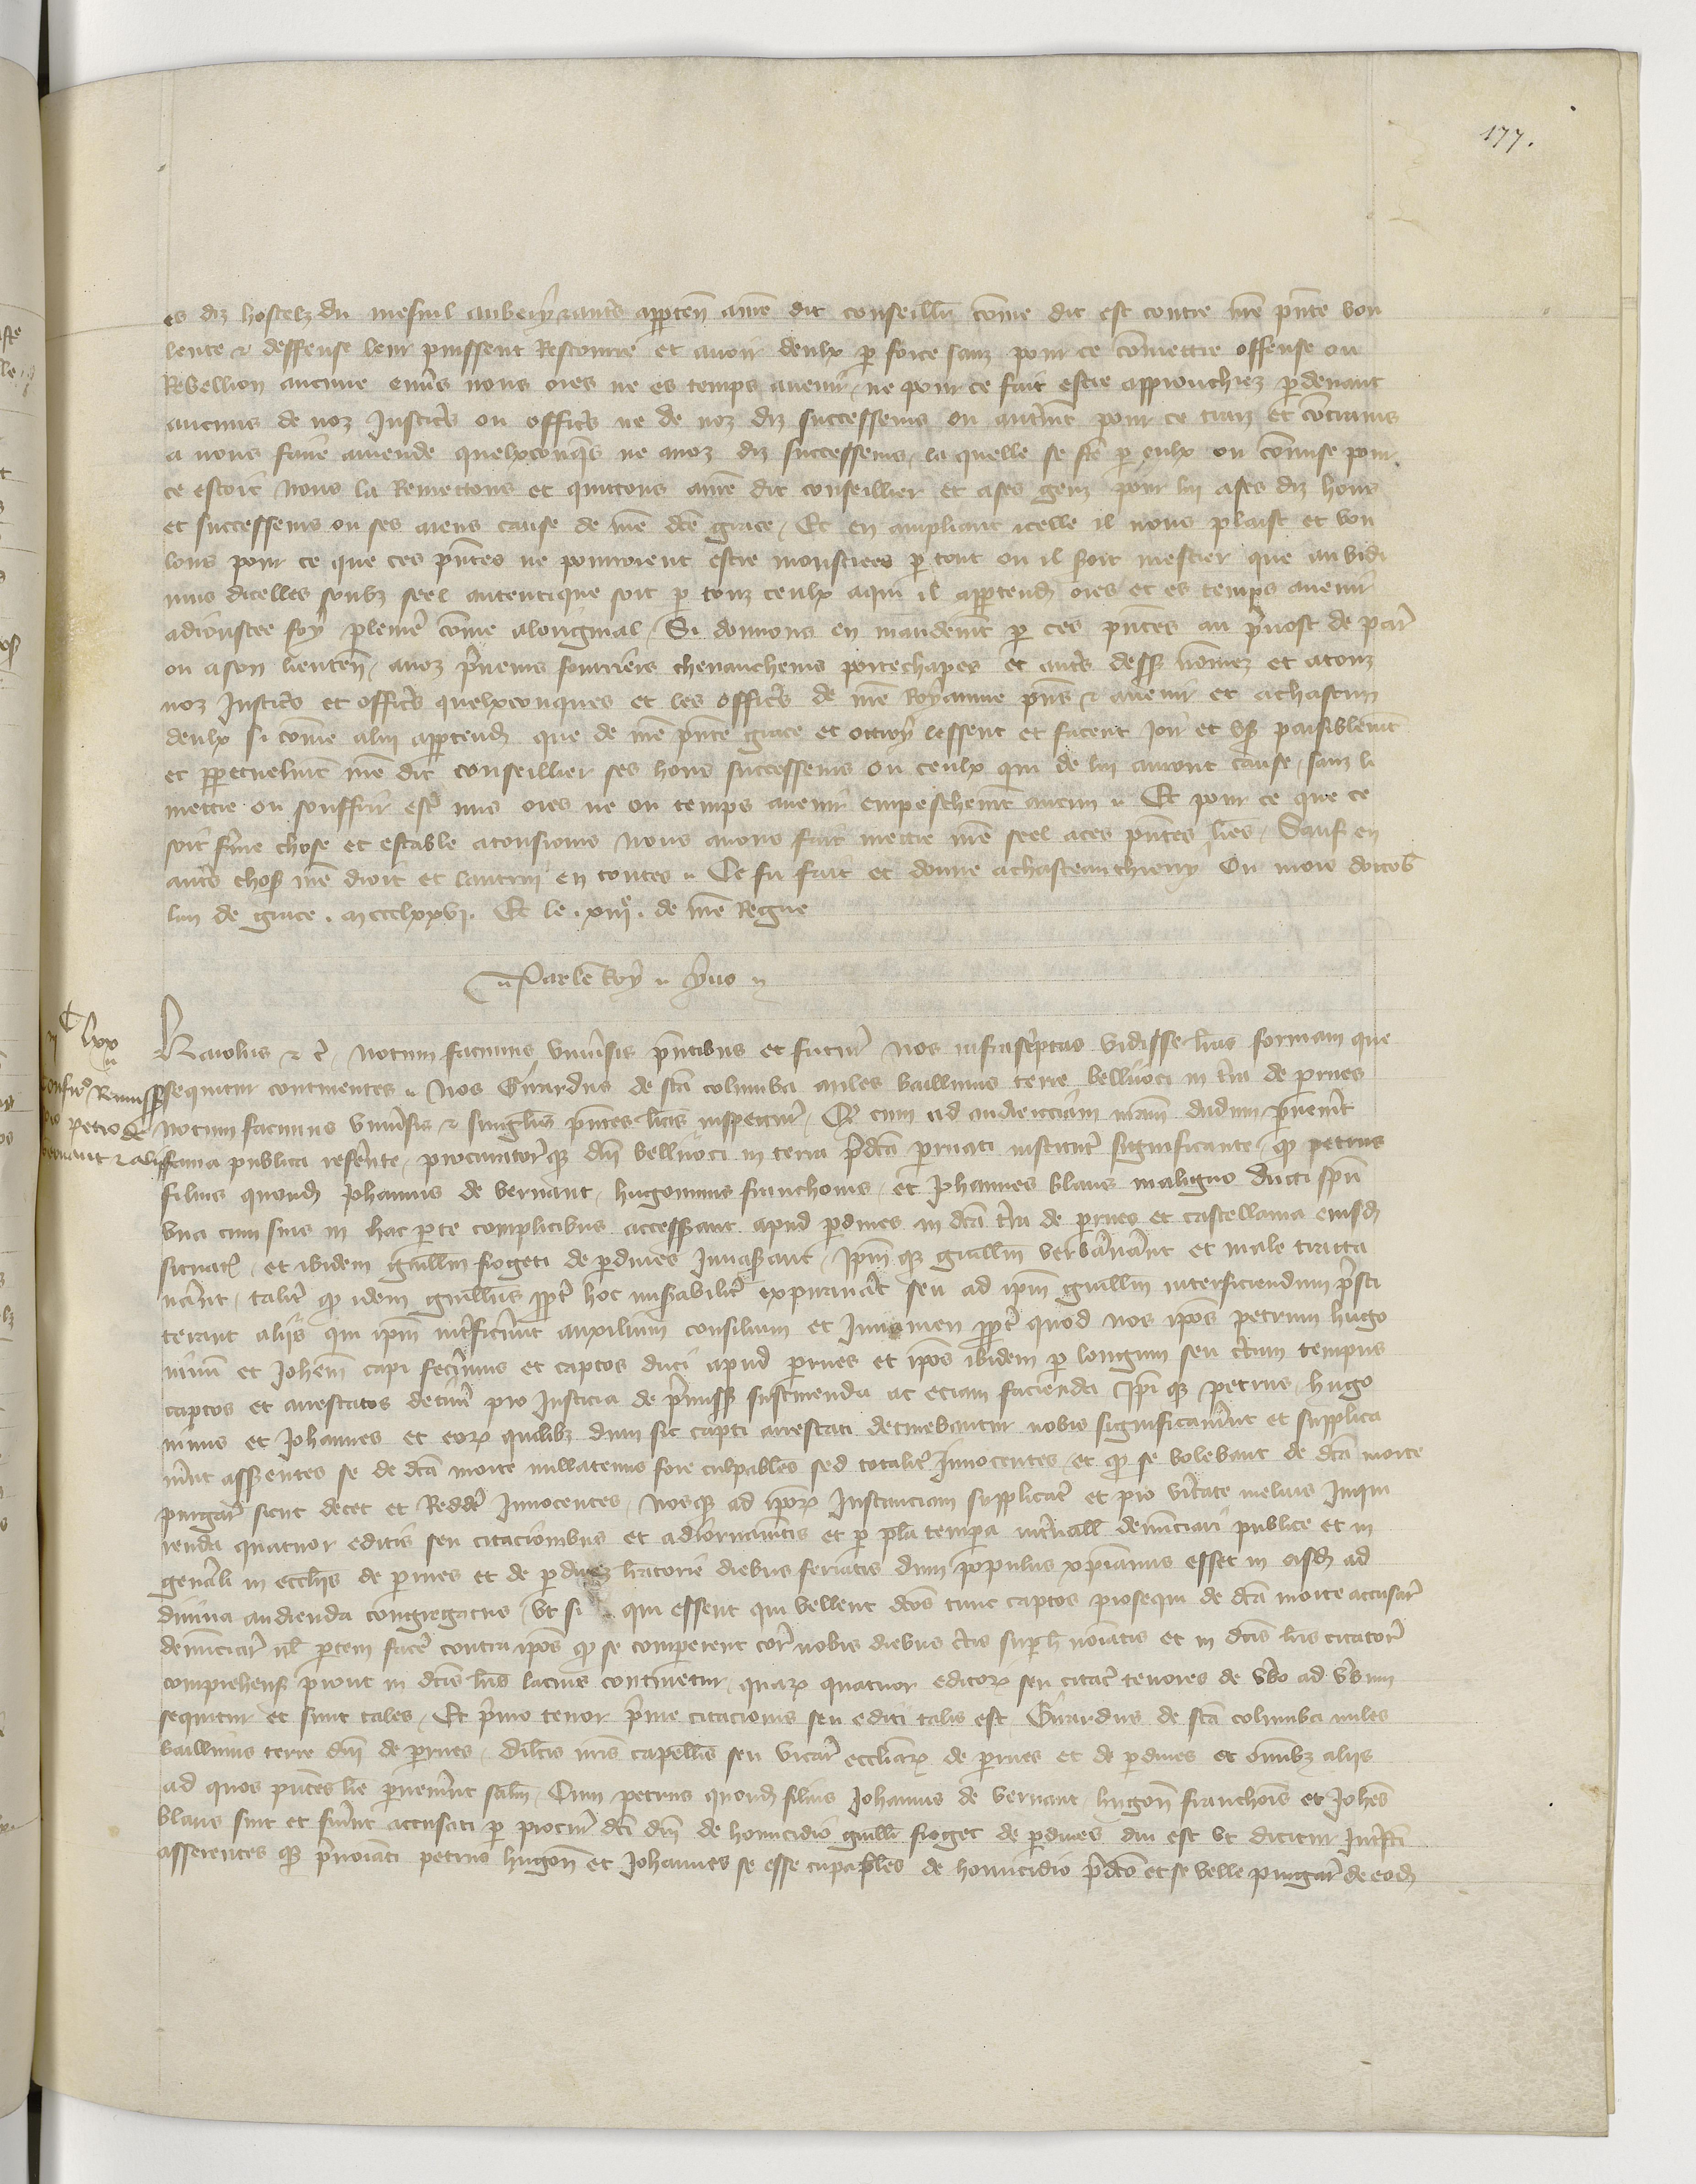 177.
es diz hostelz du mesnil aubery & autres apparten a nre dit conseillier come dit est contre nre pnte vou
lente & deffense leur puissent Rescourre et avoir deulx par force sanz pour ce comettre offense ou
Rebellion aucune envers nous ores ne es temps avenir, ne pour ce fait estre approuchiez par devant
aucuns de noz Justiciers ou officiers ne de noz diz successeurs ou autremt pour ce traiz et contrains
a nous faire amende quelxconques ne a noz diz successeurs, la quelle se fte par eulx ou comise pour
ce estoit Nous la Remettons et quittons a nre dit conseillier et a ses genz pour lui a ses diz hoirs
et successeurs ou ses aiens cause de nre dce grace, Et en ampliant icelle il nous plaist et vou
lons pour ce que ces pntes ne pourroient estre monstrees par tout ou il soit mestier que au vidi
mus dicelles soubz seel autentique soit par touz ceulx a qui il appartendra ores et es temps avenir
adioustee foy plenier come a loriginal, Si donnons en mandemt par ces pntes au prevost de par
ou a son lieuten, a noz preneurs fourriers chevaucheurs portechapes et autres dess nomez et a touz
noz Justiciers et officiers quelxconques et les officiers de nre Royaume pns & avenir et a chascun
deulx si come a lui appartendra que de nre pnte grace et ottroy lessent et facent Joir et user paisiblemt
et perpetuelmt nre dit conseillier ses hoirs successeurs ou ceulx qui de lui auront cause, sanz li
mettre ou souffrir estre mis ores ne ou temps avenir empeschemt aucun. Et pour ce que ce
soit ferme chose et estable a tousiours Nous avons fait mettre nre seel a ces pntes lres, Sauf en
autres choses nre droit et lautrui en toutes. Ce fu fait et donne a chasteauthierry Ou mois doctob
lan de grace. mccclxxvj. Et le .xiije. de nre Regne
Par le Roy. yvo
Karolus & c. Notum facimus universis pntibus et futuris Nos infrascriptas vidisse lras formam que
sequitur continentes. Nos Girardus de sca columba miles baillivus terre bellijoci in terra de perues
Notum facimus universis & singulis pntes lras inspecturis, Q cum ad audienciam nram dudum pervenit
fama publica referente, procuratorq dni bellijoci in terra predca parvati instituti significante, q petrus
filius quond Johannis de vernant, hugoninus franchonis, et Johannes blans maligno ducti spu
una cum suis in hac parte complicibus accesserant apud perdines in dca terra de perues et castellania eiusd
situat, et ibidem guillm frogeti de perdines Invaserant, ipmq guillm verberarant et male tracta
verant, taliter q idem guillus propter hoc miserabiliter expiraverat seu ad ipm guillm interficiendum presti
terant aliis qui ipm interficerunt auxilium consilium et Juvamen propter quod nos ipos petrum hugo
ninum et Johem capi fecimus et captos duci apud perues et ipos ibidem per longum seu certum tempus
captos et arrestatos detineri pro Justicia de premiss sustinenda ac eciam facienda Ipiq petrus, hugo
ninus et Johannes et eorum quilibz dum sic capti arrestati detinebantur nobis significaverunt et supplica
runt asserentes se de dca morte nullatenus fore culpabiles sed totaliter Innocentes, et q se volebant de dca morte
purgare sicut decet et Reddere Innocentes, Nosq ad ipor Instanciam supplicat et pro veritate melius Inqui
renda quatuor edictis seu citacionibus et adiornamtis et per pla tempa interuall denunciari publice et in
generali in ecclijs de perues et de perdines litteratorie diebus feriatis dum populus xpianus esset in eisd ad
divina audienda congregatus, ut si qui essent qui vellent dcos tunc captos prosequi de dca morte accusare
denunciare vel partem facere contra ipos q se comparerent coram nobis diebus certis super hoc noiatis et in dcis lris citator
comprehens prout in dcis lris lacius continetur, quar quatuor edictor seu citat tenores de verbo ad verbum
sequntur et sunt tales, Et primo tenor prime citacionis seu edicti talis est Girardus de sca columba miles
baillivus terre dni de perues, dilcis nris capellis seu vicar eccliar de perues et de perdines et omibz aliis
ad quos pntes lre pervenerint salm, Cum petrus quond filius Johannis de vernant, hugon franchois et Johes
blans sint et fuerint accusati per procur dci dni de homicidio guilli froget de perdines diu est ut dicitur Interfci
asserentesq prenoiati petrus hugon et Johannes se esse cupables de homicidio predco et se velle purgare de eod
iijc lxx
Confir Remiss
pro petro de
vernant & aliis